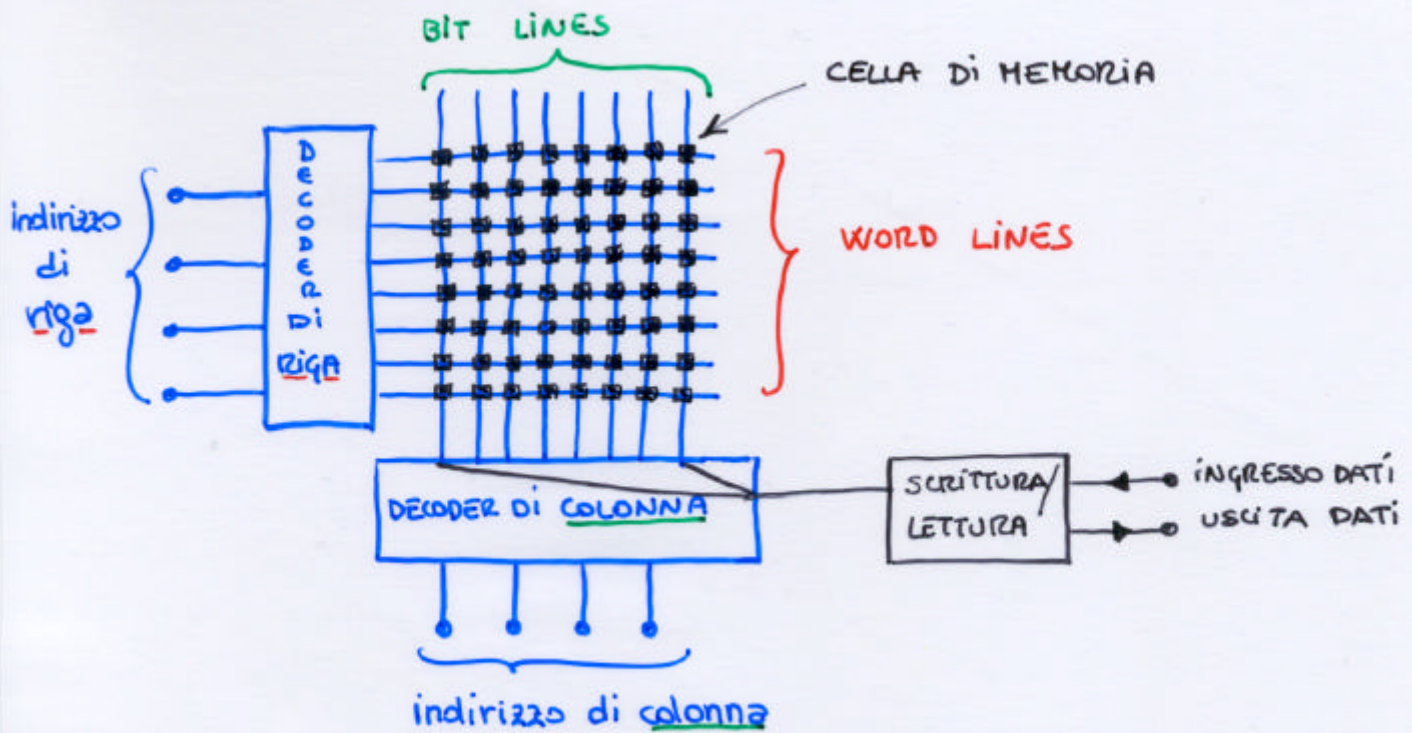 BIT LINES
CELLA DI MEMORIA
DECODER
DI
RIGA
indirizzo
di
riga
WORD LINES
DECODER DI COLONNA
SCRITTURA/
LETTURA
INGRESSO DATI
USCITA DATI
indirizzo di colonna